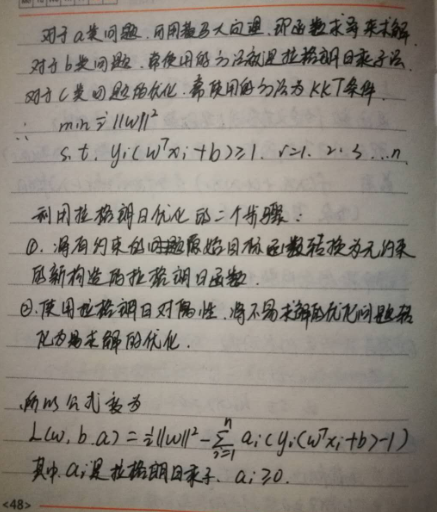 对于a类问题,可用费马大定理,即函数求导来求解
对于b类问题,常使用的方法就是拉格朗日乘子法
对于c类问题的优化,常使用的方法为KKT条件.
∴ min ½||w||²
s.t. yi(wᵀxi+b)≥1. i=1. 2. 3 ...n
利用拉格朗日优化的二个步骤:
①. 将有约束的问题原始目标函数转换为无约束
的新构造的拉格朗日函数.
②.使用拉格朗日对偶性.将不易求解的优化问题转
化为易求解的优化.
所以公式变为
L(w,b.a)=½||w||²-∑ⁿᵢ₌₁ ai(yi(wᵀxi+b)-1)
其中.ai是拉格朗日乘子. ai≥0.
<48>